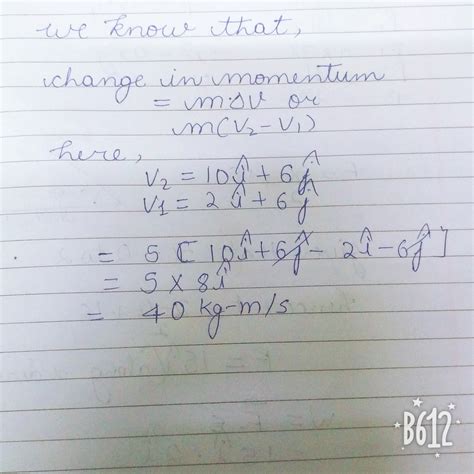 we know that,
change in momentum
= m∆v or
m(V₂-V₁)
here,
V₂ = 10î + 6ĵ
V₁ = 2î + 6ĵ
= 5 [10î+6ĵ - 2î-6ĵ]
= 5 × 8î
= 40 kg-m/s
B612